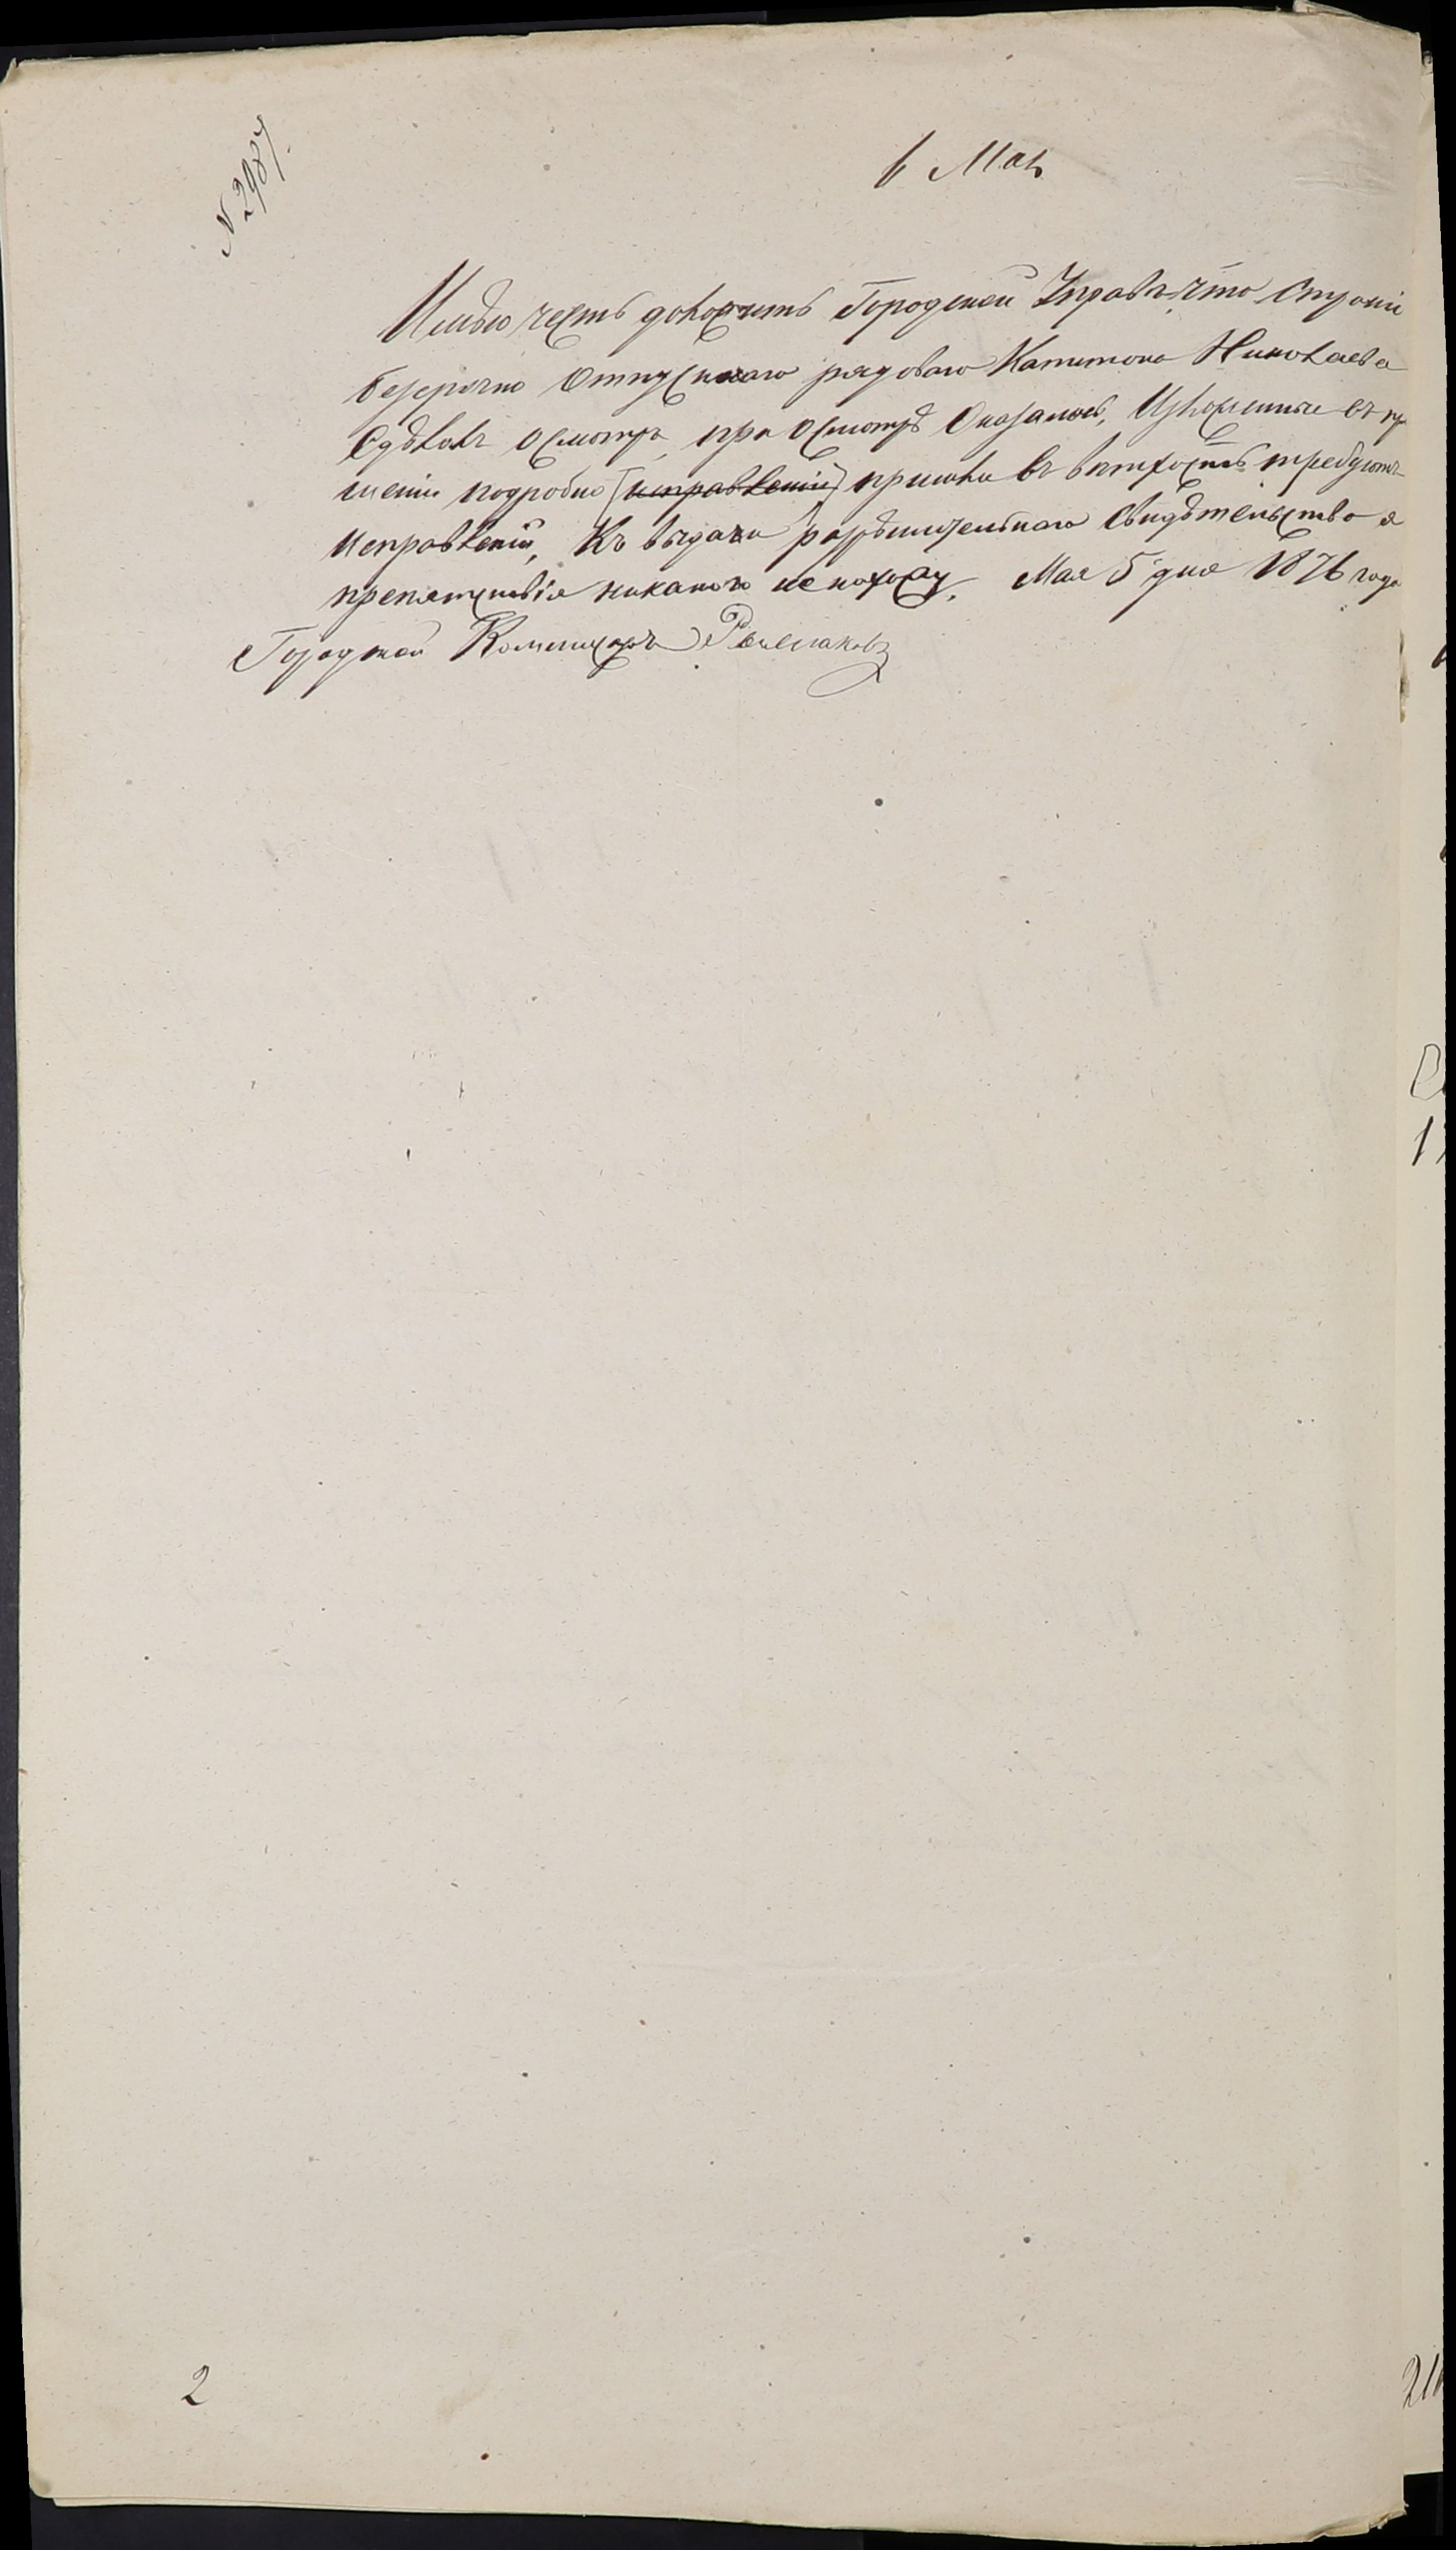 N 2987.
6 Мая
Имѣю честь доложить Городской Управѣ, что строніи
безсрочно отпускнаго рядоваго Капитона Николаева
сдѣлалъ осмотръ, при осмотрѣ оказалось, изложенные въ пр
шеніи подробно [исправленіи] пришли въ ветхость требуютъ
исправленій, Къ выдачи разрѣшительнаго свидѣтельство я
препятствія никакого не нахожу. Мая 5 дня 1876 года
Городской Коммисаръ
2